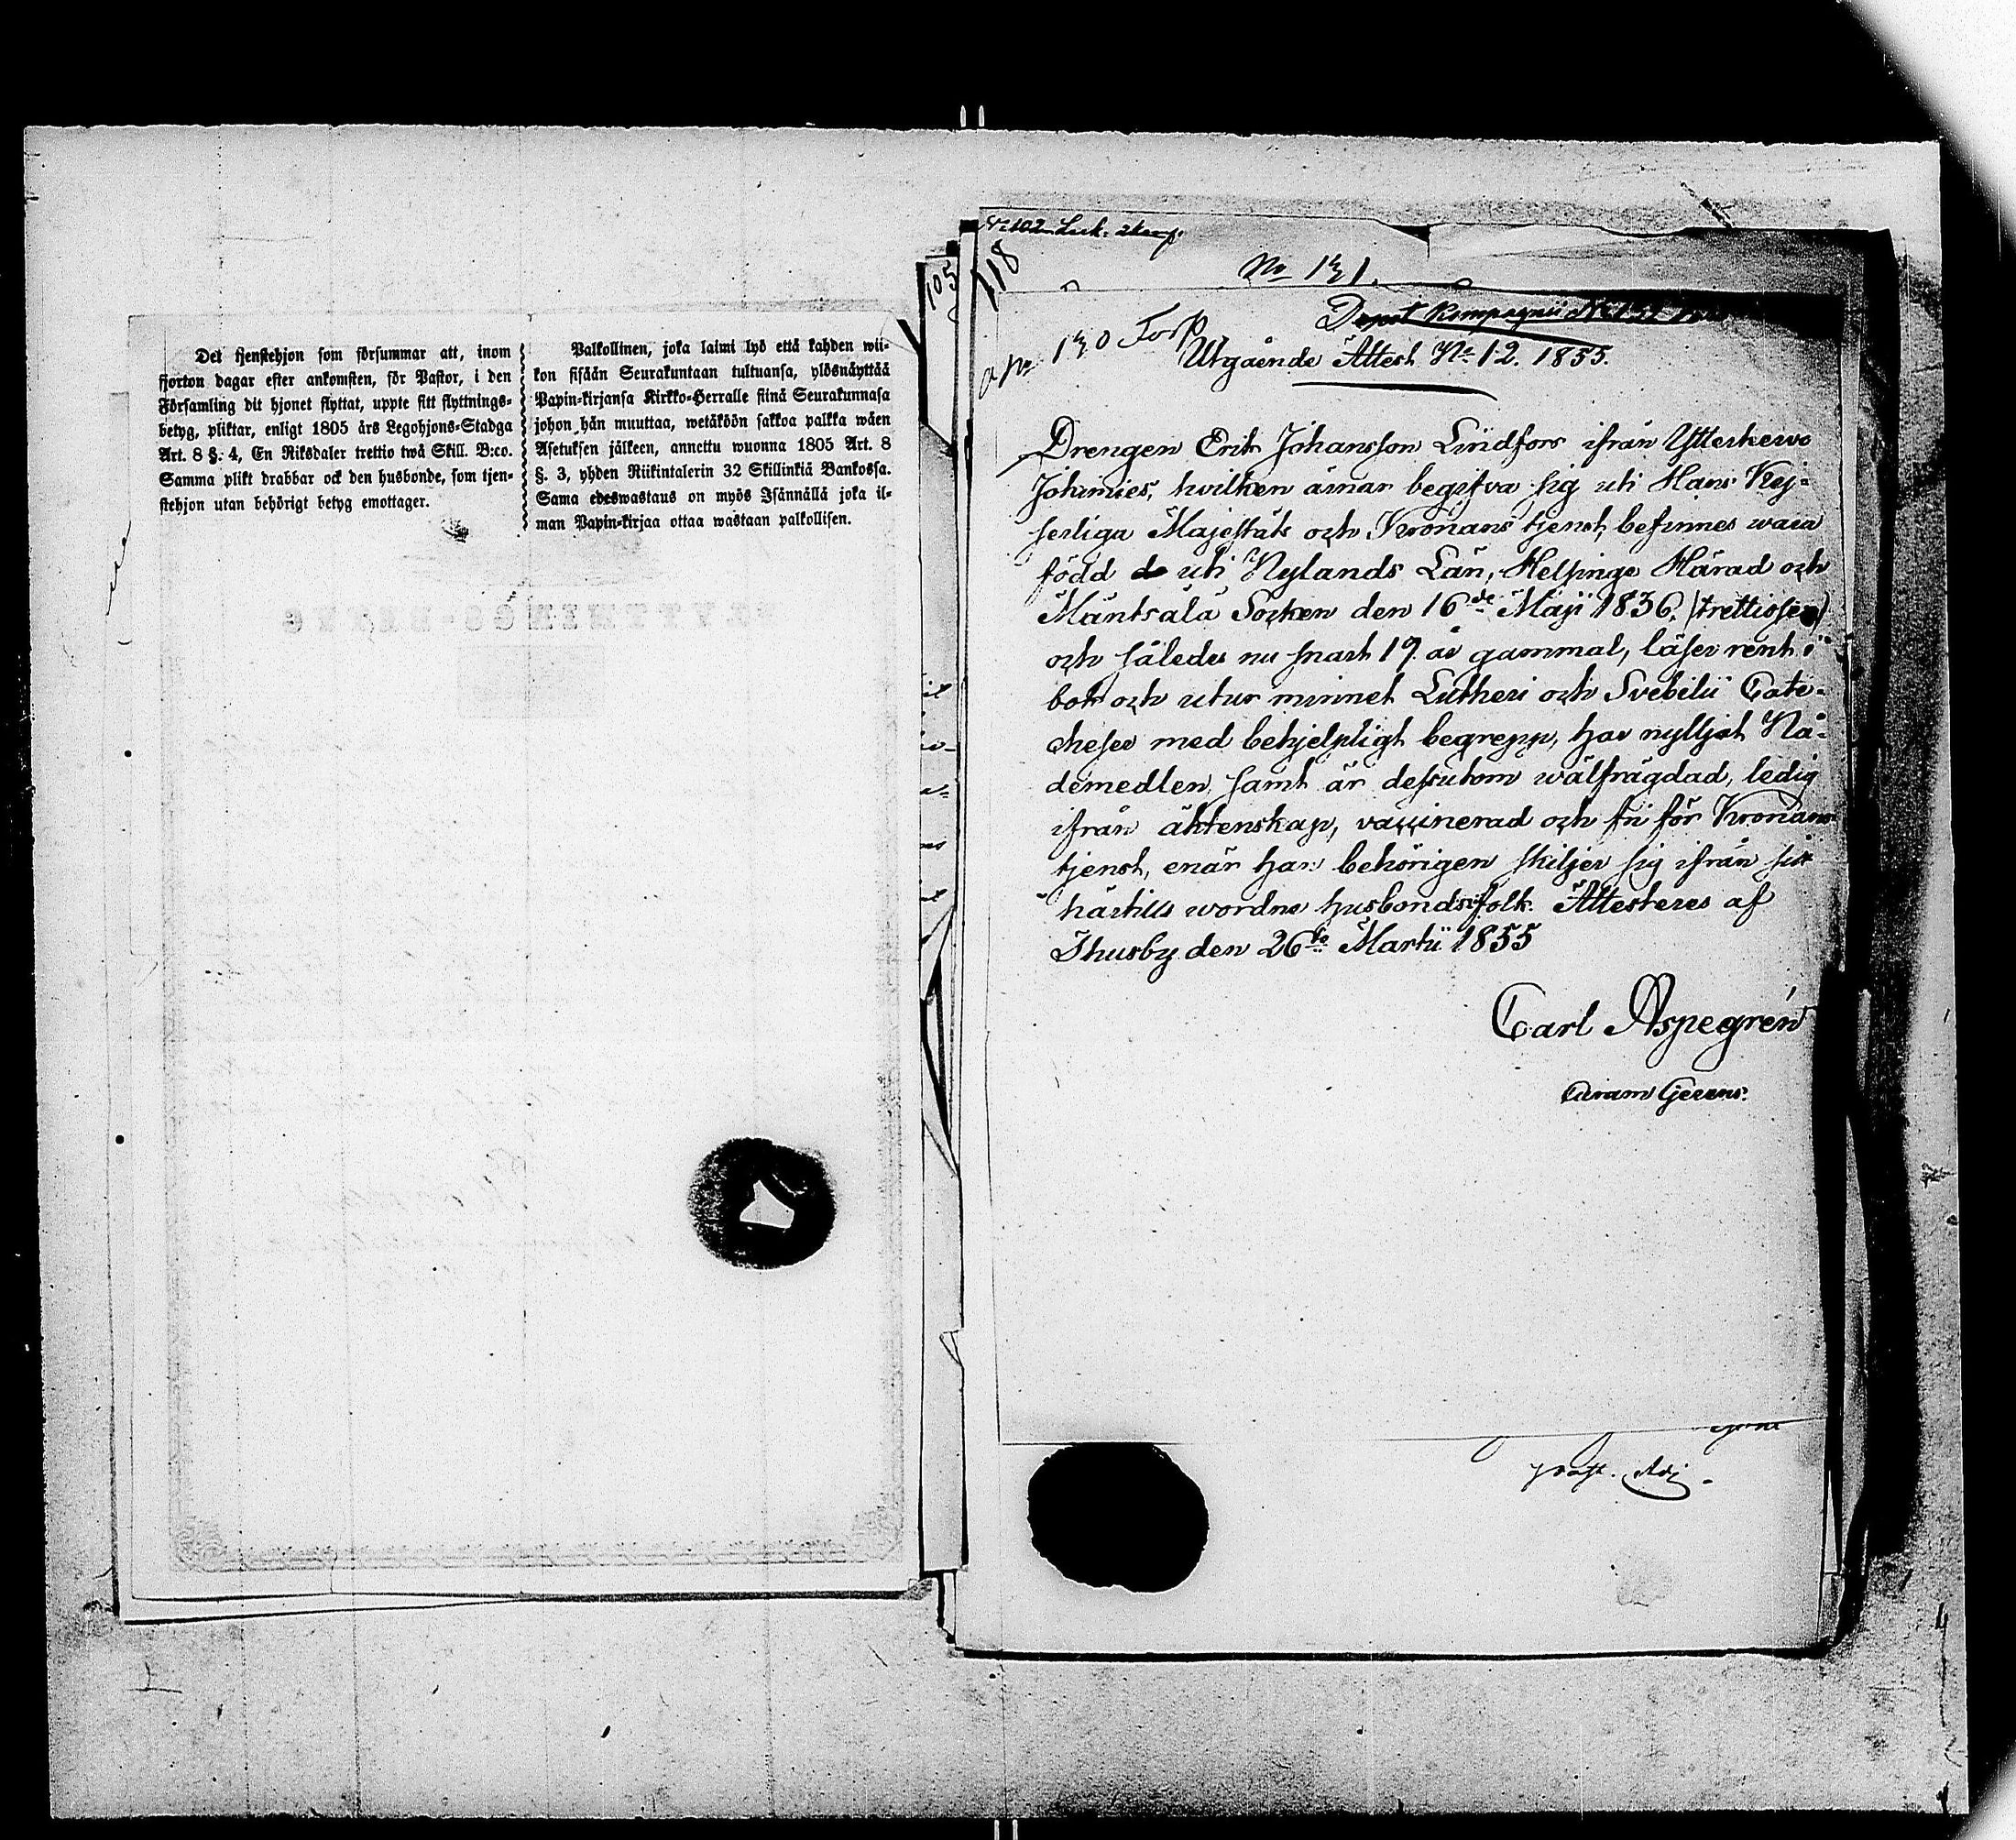 Det tjenstehjon som försummar att, inom
fjorton dagar efter ankomsten, för Pastor, i den
Församling dit hjonet flyttat, uppte sitt flyttnings-
betyg, pliktar, enligt 1805 års Legohjons-Stadga
Art. 8 §. 4, En Riksdaler trettio twå Skill. B:co.
Samma plikt drabbar ock den husbonde, som tjen-
stehjon utan behörigt betyg emottager.
Palkollinen, joka laimi lyö että kahden wii-
kon sisään Seurakuntaan tultuansa, ylösnäyttää
Papin-kirjansa Kirkko-Herralle siinä Seurakunnasa
johon hän muuttaa, wetäköön sakkoa palkka wäen
Asetuksen jälkeen, annettu wuonna 1805 Art. 8
§. 3, yhden Riikintalerin 32 Skillinkiä Bankossa.
Sama edeswastaus on myös Isännällä joka il-
man Papin-kirjaa ottaa wastaan palkollisen.
FLYTTNINGS-BETYG
105
118
No 131.
Depot Kompagnii
No 130 Torp
Utgående Attest No 12. 1855.
Drengen Erik Johansson Lindfors ifrån Ytterkervo
Johimies, hvilken ämar begifva sig uti Hans Kej-
serliga Majestäts och Kronans tjenst, befinnes wara
född uti Nylands Län, Helsinge Härad och
Mäntsälä Socken den 16de Maji 1836. (trettiosex)
och således nu snart 19 år gammal, läser rent i
bok och utur minnet Lutheri och Svebilii Cate-
cheser med behjelpligt begrepp, har nyttjat Nå-
demedlen, samt är dessutom wälfrägdad, ledig
ifrån äktenskap, vaccinerad och fri för Kronans
tjenst, enär han behörigen skiljer sig ifrån sitt
härtills wordne husbondsfolk. Attesteres af
Thusby den 26te Martii 1855
Carl Aspegrén
Curam Gerens.
Past. Adj.